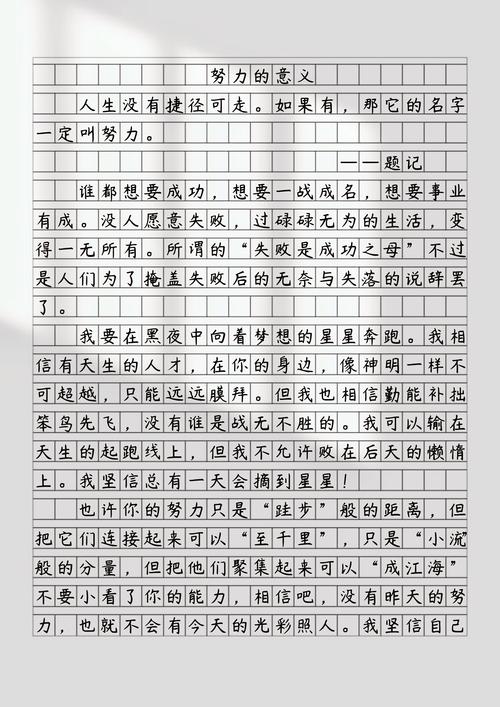 努力的意义
人生没有捷径可走。如果有，那它的名字
一定叫努力。
——题记
谁都想要成功，想要一战成名，想要事业
有成。没人愿意失败，过碌碌无为的生活，变
得一无所有。所谓的“失败是成功之母”不过
是人们为了掩盖失败后的无奈与失落的说辞罢
了。
我要在黑夜中向着梦想的星星奔跑。我相
信有天生的人才，在你的身边，像神明一样不
可超越，只能远远膜拜。但我也相信勤能补拙
笨鸟先飞，没有谁是战无不胜的。我可以输在
天生的起跑线上，但我不允许败在后天的懒惰
上。我坚信总有一天会摘到星星！
也许你的努力只是“跬步”般的距离，但
把它们连接起来可以“至千里”，只是“小流”
般的分量，但把他们聚集起来可以“成江海”
不要小看了你的能力，相信吧，没有昨天的努
力，也就不会有今天的光彩照人。我坚信自己